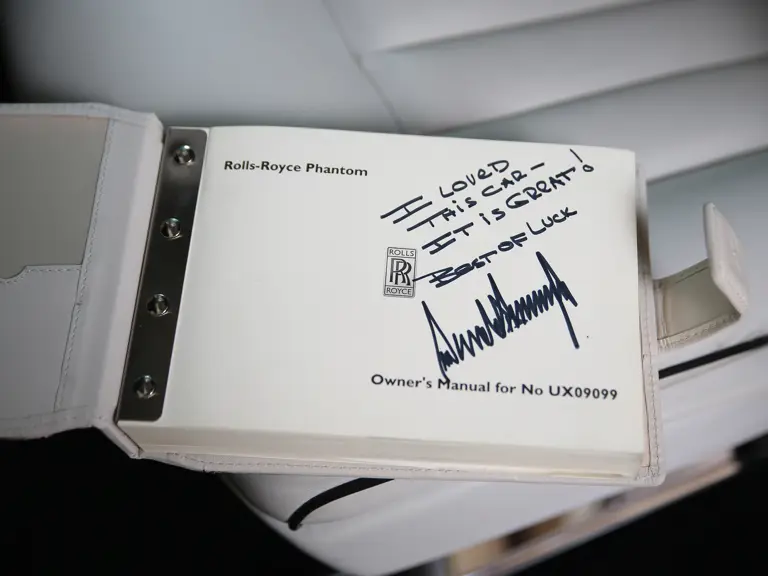 Rolls-Royce Phantom
I LOVED
THIS CAR –
IT IS GREAT!
BEST OF LUCK
ROLLS
RR
ROYCE
Owner's Manual for No UX09099